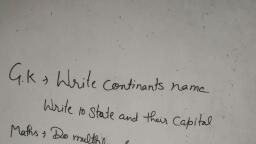 G.K → Write Continants name
Write 10 State and their Capital
Maths → Do